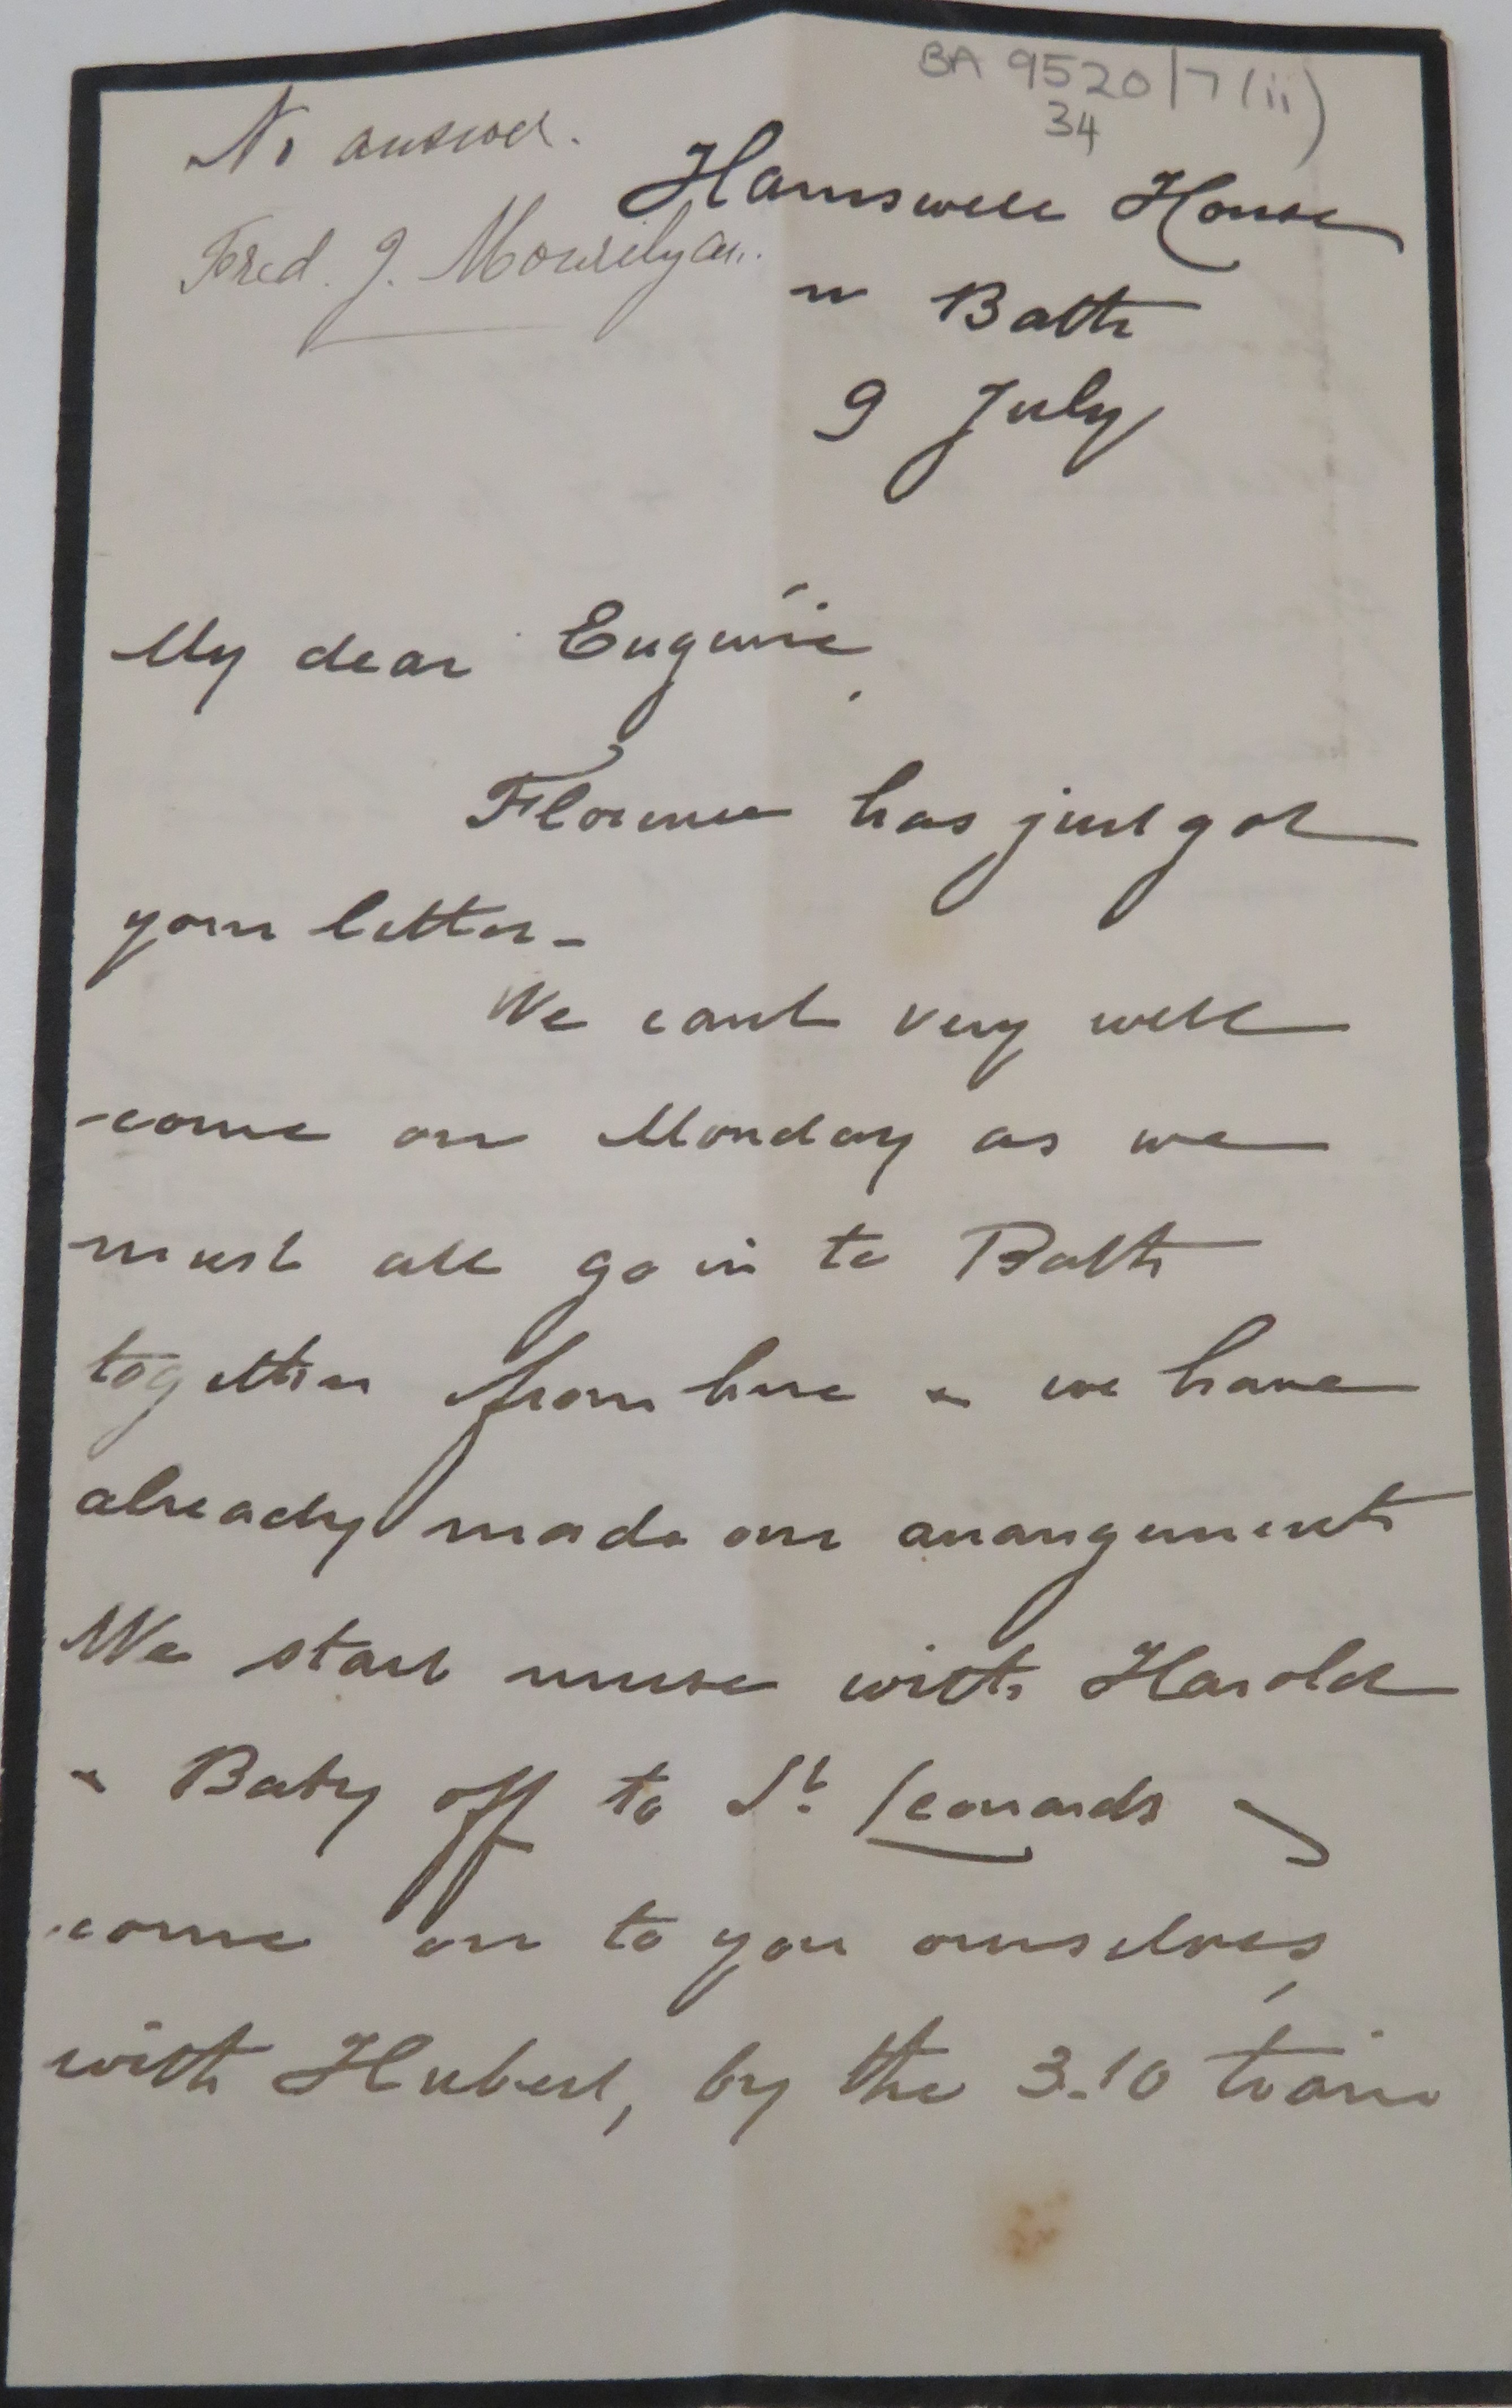 BA 9520/7(ii)
34
No answer.
Fred. J. Mourilyan.
Hamswell House
nr Bath
9 July
My dear Eugénie,
Florence has just got
your letter -
We cant very well
come on Monday as we
must all go in to Bath
together from here & we have
already made our arrangements
We start nurse with Harold
& Baby off to St. Leonards &
come on to you ourselves,
with Hubert, by the 3.10 train